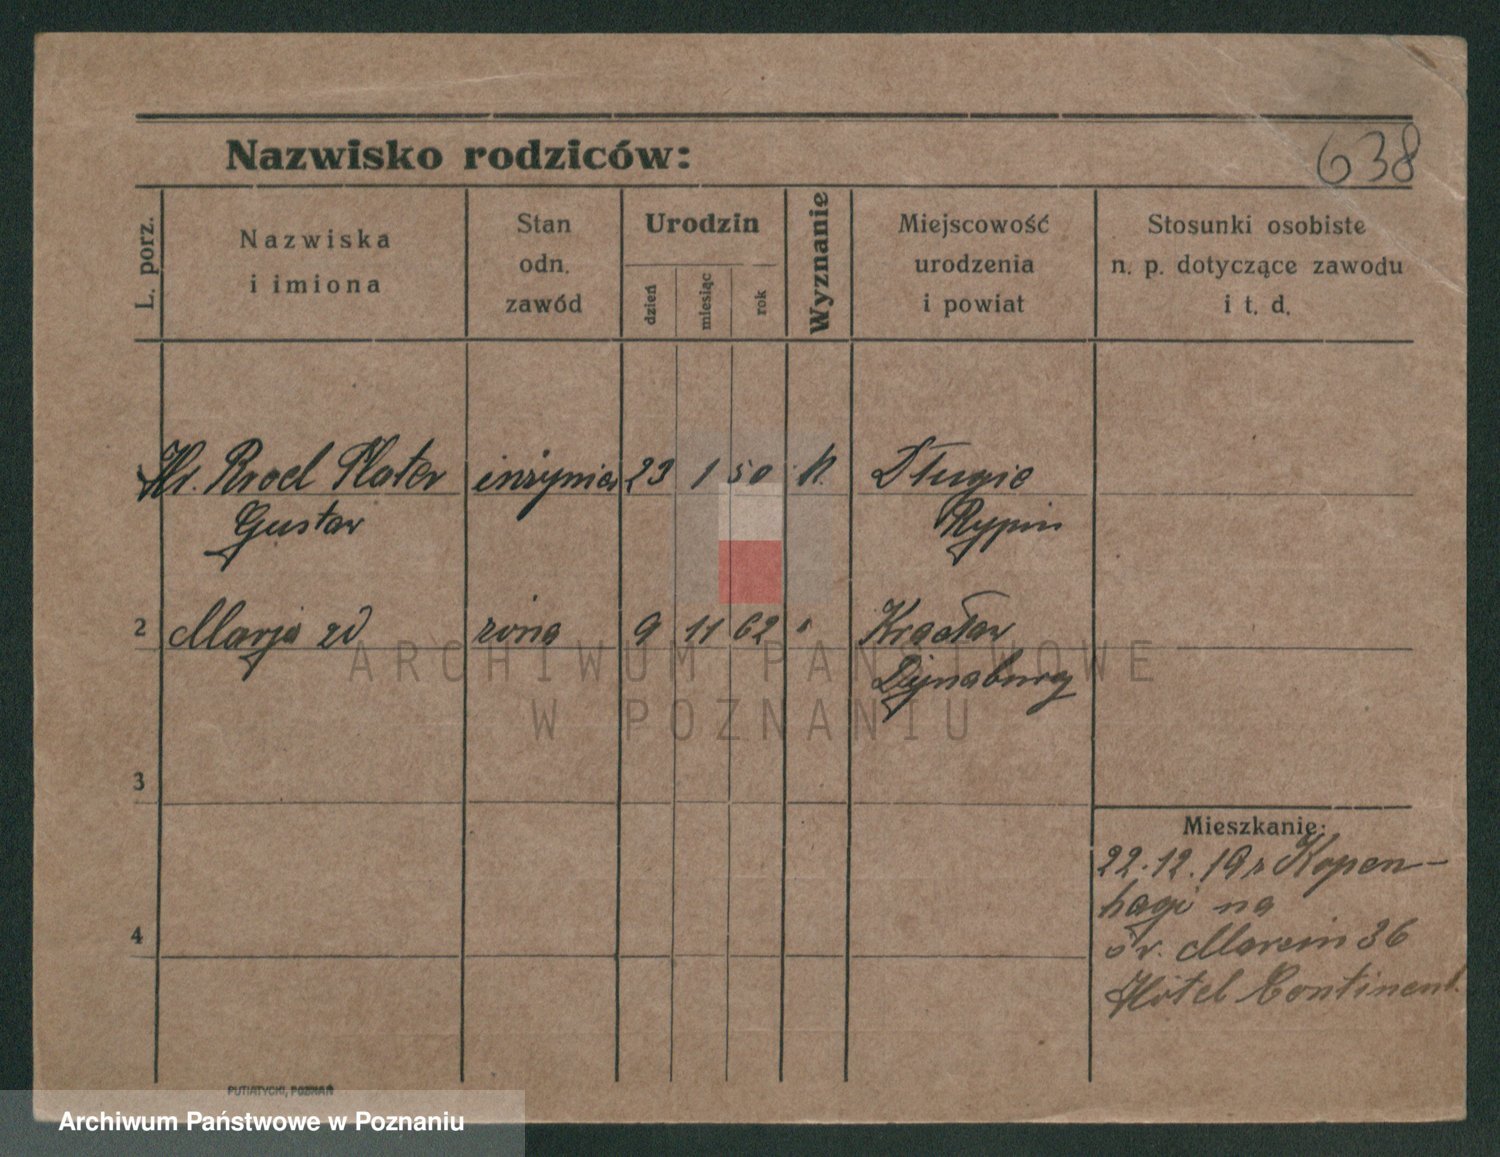 638
Nazwisko rodziców:
L. porz.
Nazwiska
i imiona
Stan
odn.
zawód
Urodzin
dzień
miesiąc
rok
Wyznanie
Miejscowość
urodzenia
i powiat
Stosunki osobiste
n. p. dotyczące zawodu
i t. d.
Hr. Broel Plater inżynier 23 1 50 k. Długie
Gustaw Rypin
2 Marja żona 9 11 62 " Krasław
Dynaburg
3
4
Mieszkanie:
22.12.19 z Kopen-
hagi na
św. Marcin 36
Hôtel Continent.
PUTIATYCKI, POZNAŃ
ARCHIWUM PAŃSTWOWE
W POZNANIU
Archiwum Państwowe w Poznaniu